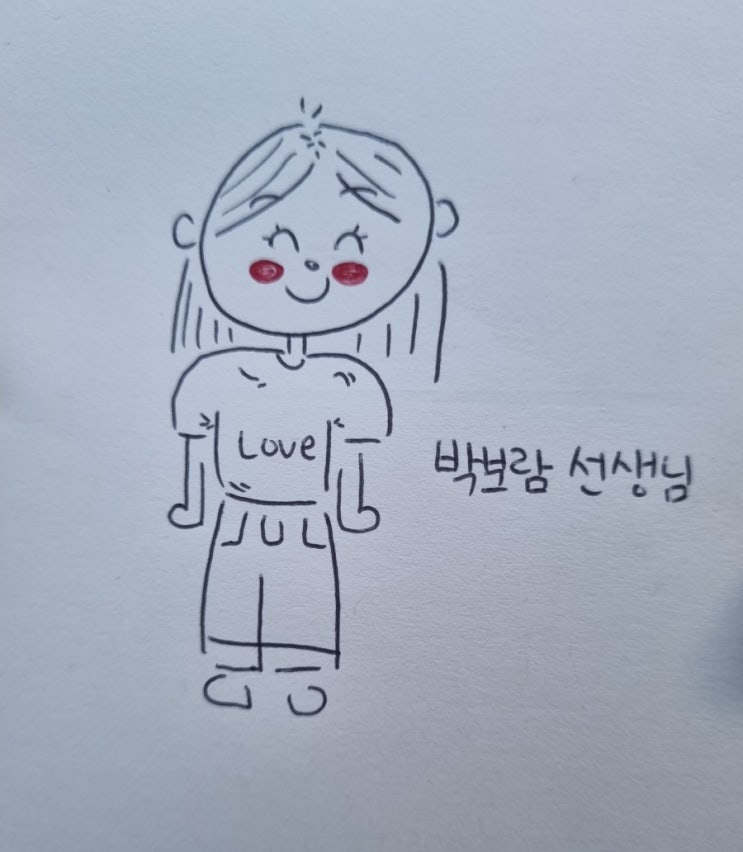 Love
박보람 선생님